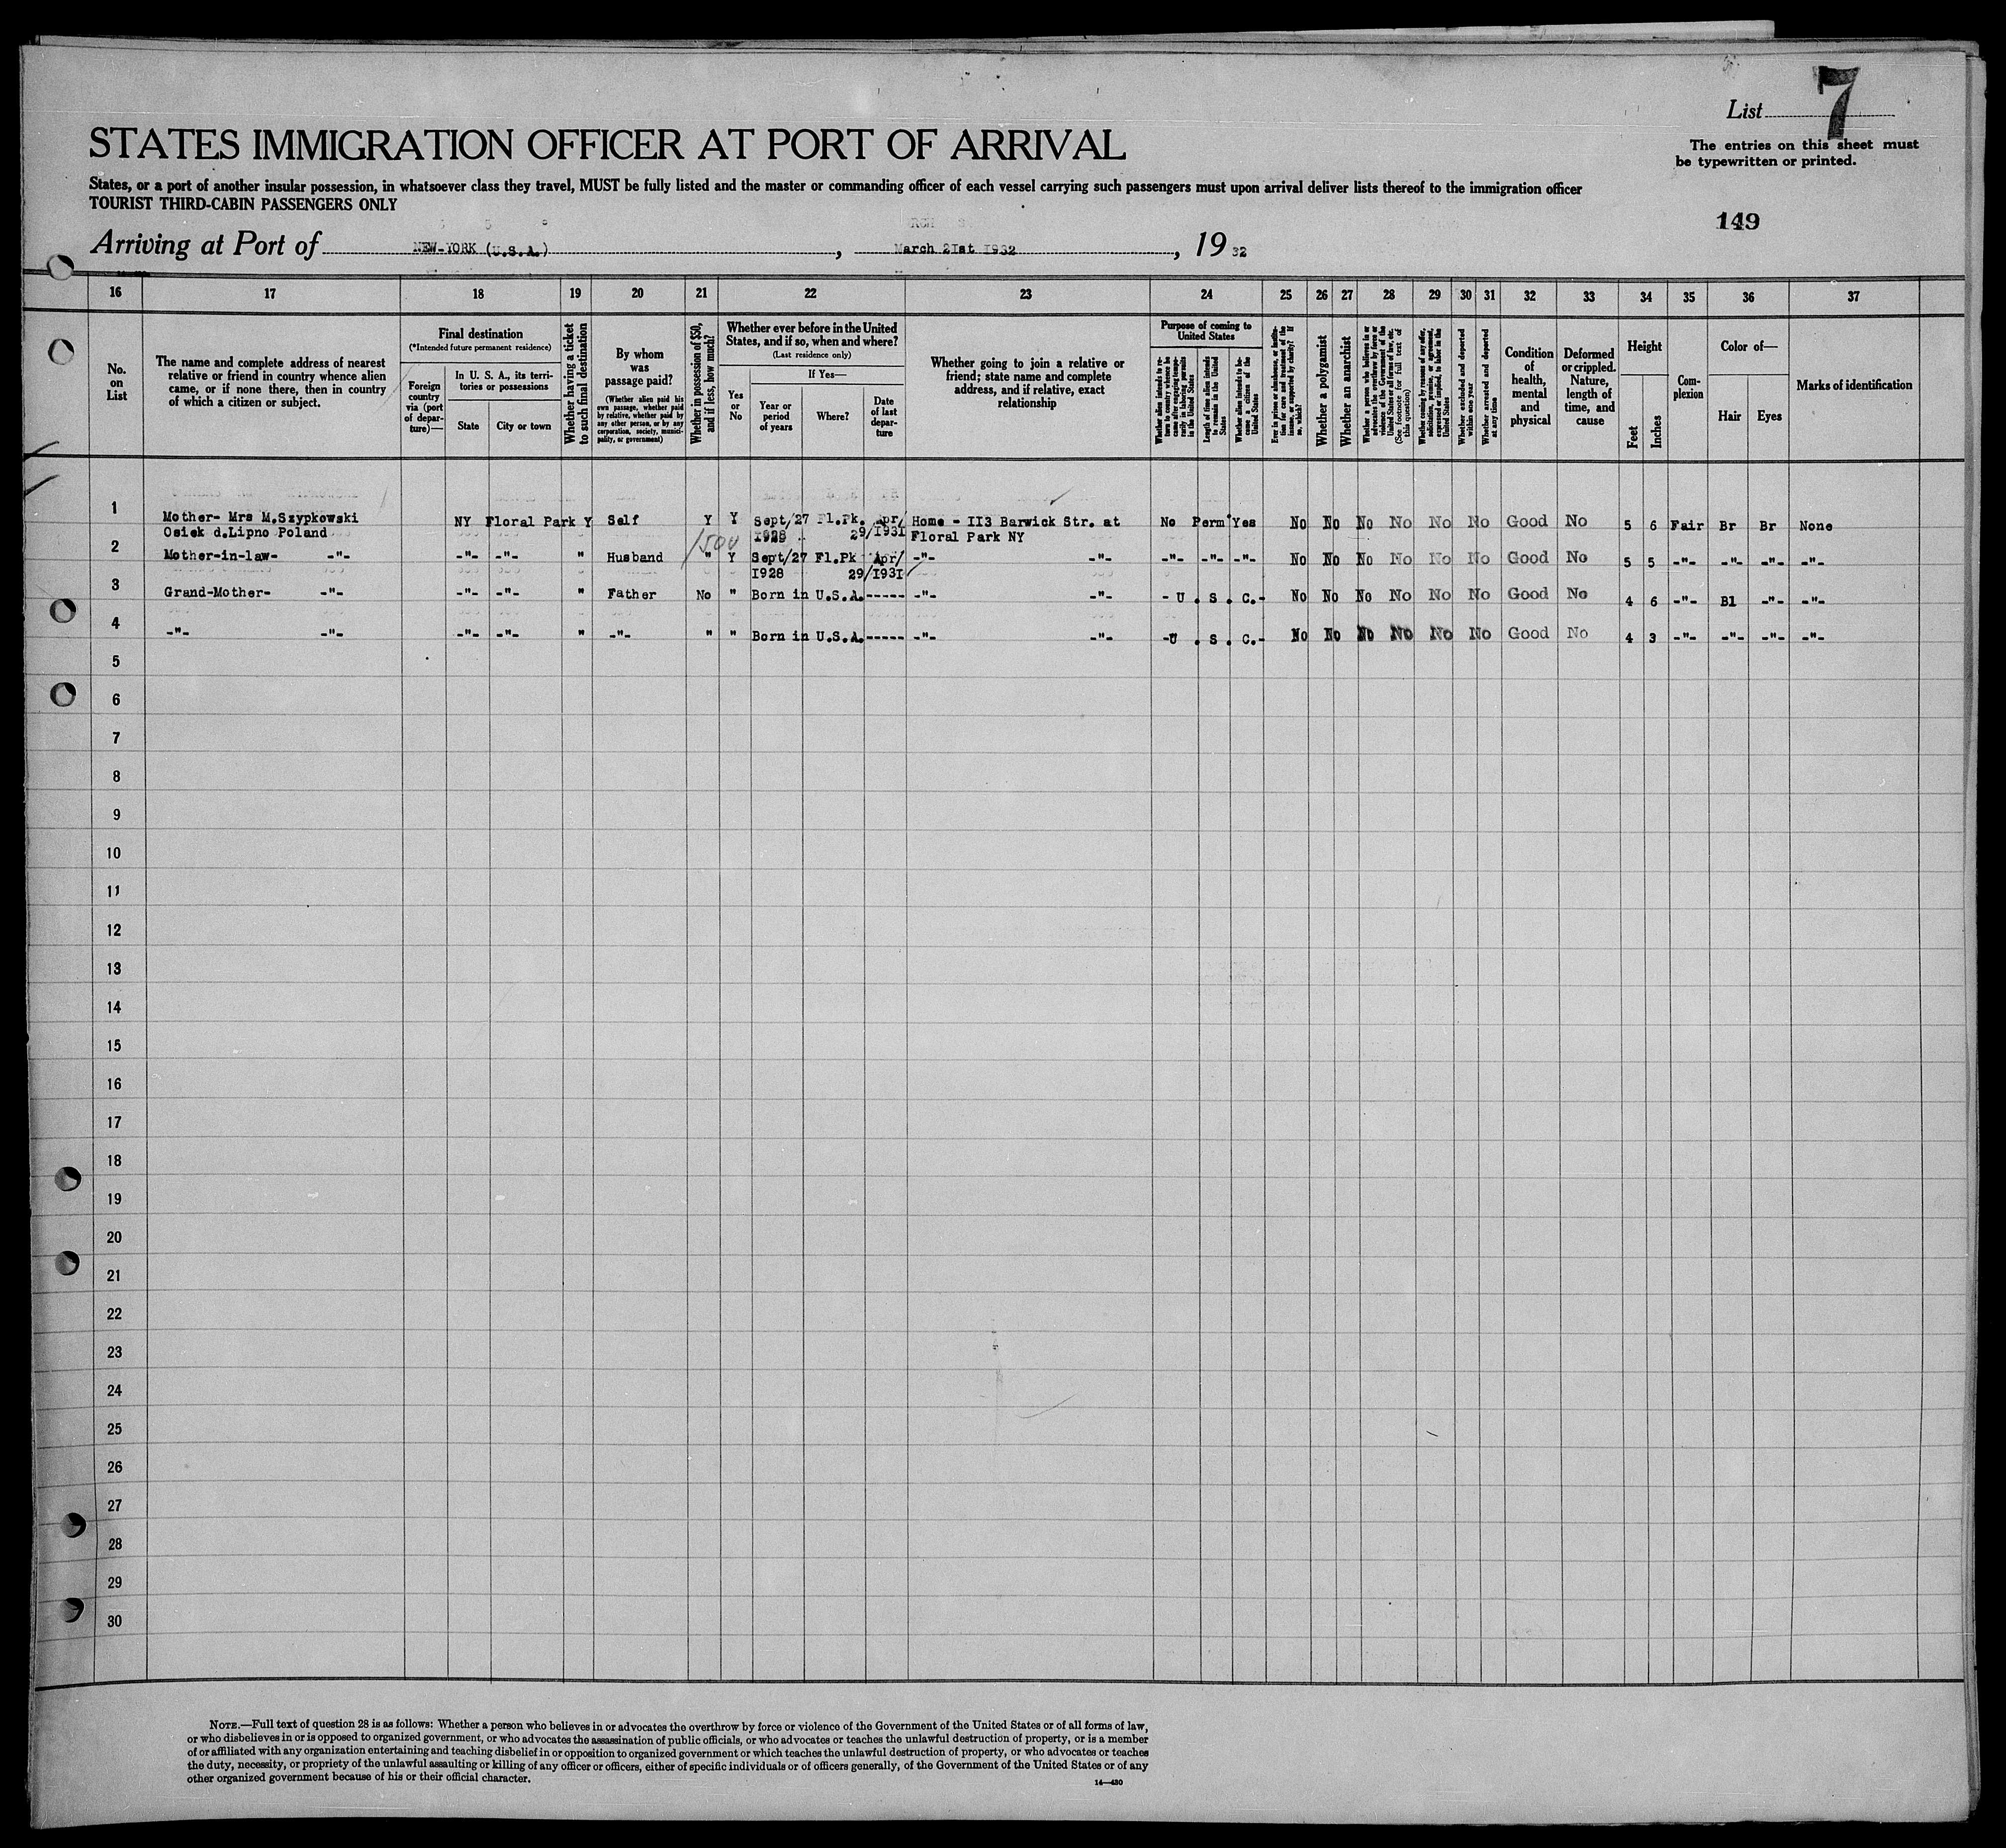 List 7
STATES IMMIGRATION OFFICER AT PORT OF ARRIVAL
The entries on this sheet must
be typewritten or printed.
States, or a port of another insular possession, in whatsoever class they travel, MUST be fully listed and the master or commanding officer of each vessel carrying such passengers must upon arrival deliver lists thereof to the immigration officer
TOURIST THIRD-CABIN PASSENGERS ONLY
149
Arriving at Port of NEW-YORK (U.S.A.), March 2Ist I932, 19 32
16 17 18 19 20 21 22 23 24 25 26 27 28 29 30 31 32 33 34 35 36 37
No.
on
List
The name and complete address of nearest
relative or friend in country whence alien
came, or if none there, then in country
of which a citizen or subject.
Final destination
(*Intended future permanent residence)
Foreign
country
via (port
of depar-
ture)—
In U. S. A., its terri-
tories or possessions
State
City or town
Whether having a ticket
to such final destination
By whom
was
passage paid?
(Whether alien paid his
own passage, whether paid
by relative, whether paid by
any other person, or by any
corporation, society, munici-
pality, or government)
Whether in possession of $50,
and if less, how much?
Whether ever before in the United
States, and if so, when and where?
(Last residence only)
Yes
or
No
If Yes—
Year or
period
of years
Where?
Date
of last
depar-
ture
Whether going to join a relative or
friend; state name and complete
address, and if relative, exact
relationship
Purpose of coming to
United States
Whether alien intends to re-
turn to country whence he
came after engaging tempo-
rarily in laboring pursuits
in the United States
Length of time alien intends
to remain in the United
States
Whether alien intends to be-
come a citizen of the
United States
Ever in prison or almshouse, or institu-
tion for care and treatment of the
insane, or supported by charity? If
so, which?
Whether a polygamist
Whether an anarchist
Whether a person who believes in or
advocates the overthrow by force or
violence of the Government of the
United States or all forms of law, etc.
(See footnote for full text of
this question)
Whether coming by reason of any offer,
solicitation, promise, or agreement,
expressed or implied, to labor in the
United States
Whether excluded and deported
within one year
Whether arrested and deported
at any time
Condition
of
health,
mental
and
physical
Deformed
or crippled.
Nature,
length of
time, and
cause
Height
Feet
Inches
Com-
plexion
Color of—
Hair
Eyes
Marks of identification
1 Mother- Mrs M.Szypkowski NY Floral Park Y Self Y Y Sept/27 Fl.Pk. Apr/ Home - II3 Barwick Str. at No Perm Yes No No No No No No Good No 5 6 Fair Br Br None
Osiek d.Lipno Poland I928 29/I93I Floral Park NY
150
2 Mother-in-law- -"- -"- -"- " Husband " Y Sept/27 Fl.Pk Apr/ -"- -"- -"- -"- -"- No No No No No No Good No 5 5 -"- -"- -"- -"-
I928 29/I93I
3 Grand-Mother- -"- -"- -"- " Father No " Born in U.S.A.----- -"- -"- -U . S . C.- No No No No No No Good No 4 6 -"- Bl -"- -"-
4 -"- -"- -"- -"- " -"- " " Born in U.S.A.----- -"- -"- -U . S . C.- No No No No No No Good No 4 3 -"- -"- -"- -"-
5
6
7
8
9
10
11
12
13
14
15
16
17
18
19
20
21
22
23
24
25
26
27
28
29
30
NOTE.—Full text of question 28 is as follows: Whether a person who believes in or advocates the overthrow by force or violence of the Government of the United States or of all forms of law,
or who disbelieves in or is opposed to organized government, or who advocates the assassination of public officials, or who advocates or teaches the unlawful destruction of property, or is a member
of or affiliated with any organization entertaining and teaching disbelief in or opposition to organized government or which teaches the unlawful destruction of property, or who advocates or teaches
the duty, necessity, or propriety of the unlawful assaulting or killing of any officer or officers, either of specific individuals or of officers generally, of the Government of the United States or of any
other organized government because of his or their official character.
14—430